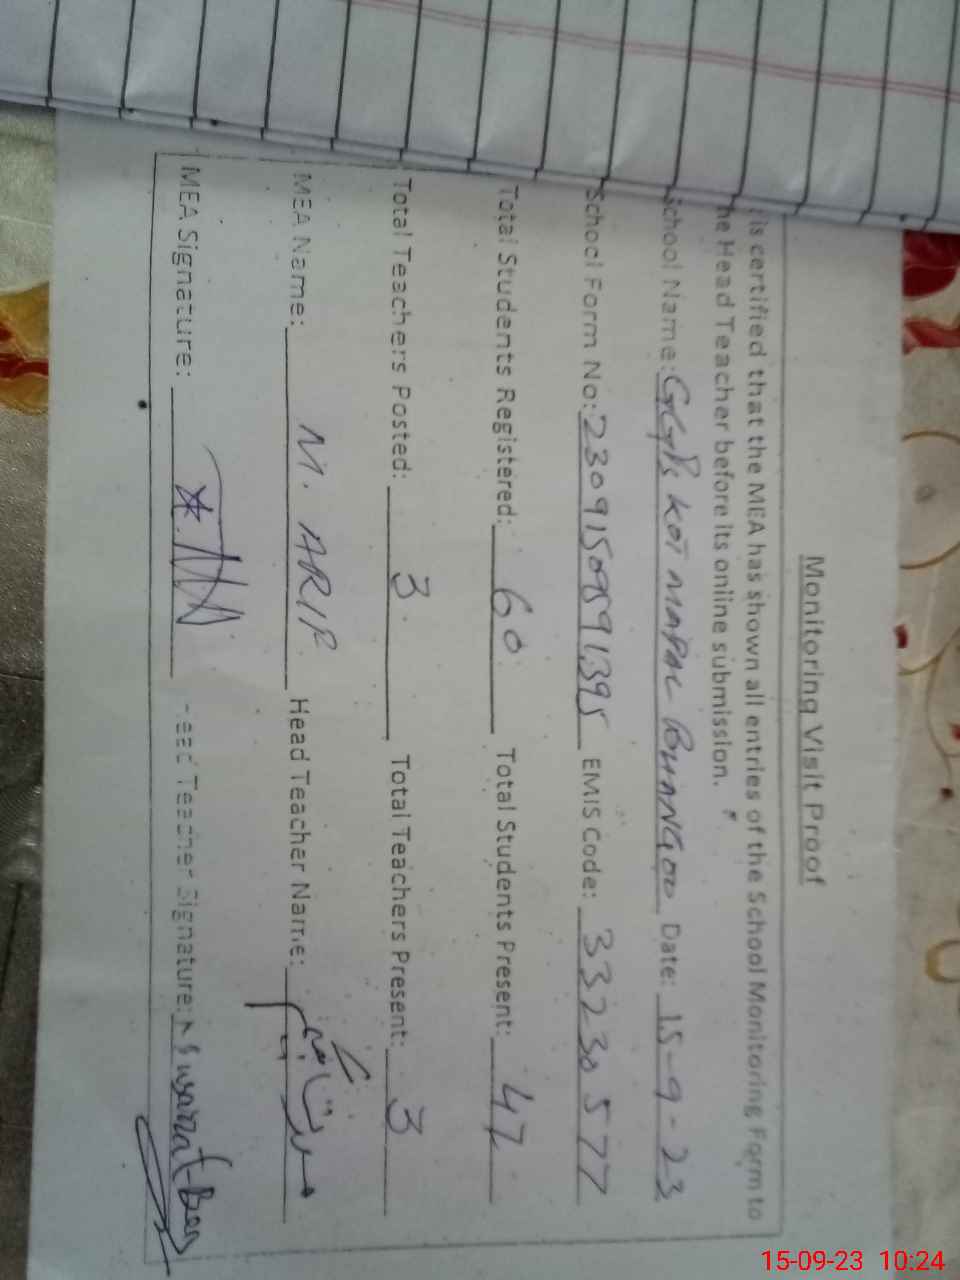 Monitoring Visit Proof
is certified that the MEA has shown all entries of the School Monitoring Form to
he Head Teacher before its online submission.
School Name: GGPS KOT Date: 15-9-23
School Form No: 23091509591395 EMIS Code: 33230577
Total Students Registered: 60 Total Students Present: 47
Total Teachers Posted: 3 Total Teachers Present: 3
MEA Name: M. ARIF Head Teacher Name:
MEA Signature: Head Teacher Signature:
15-09-23 10:24